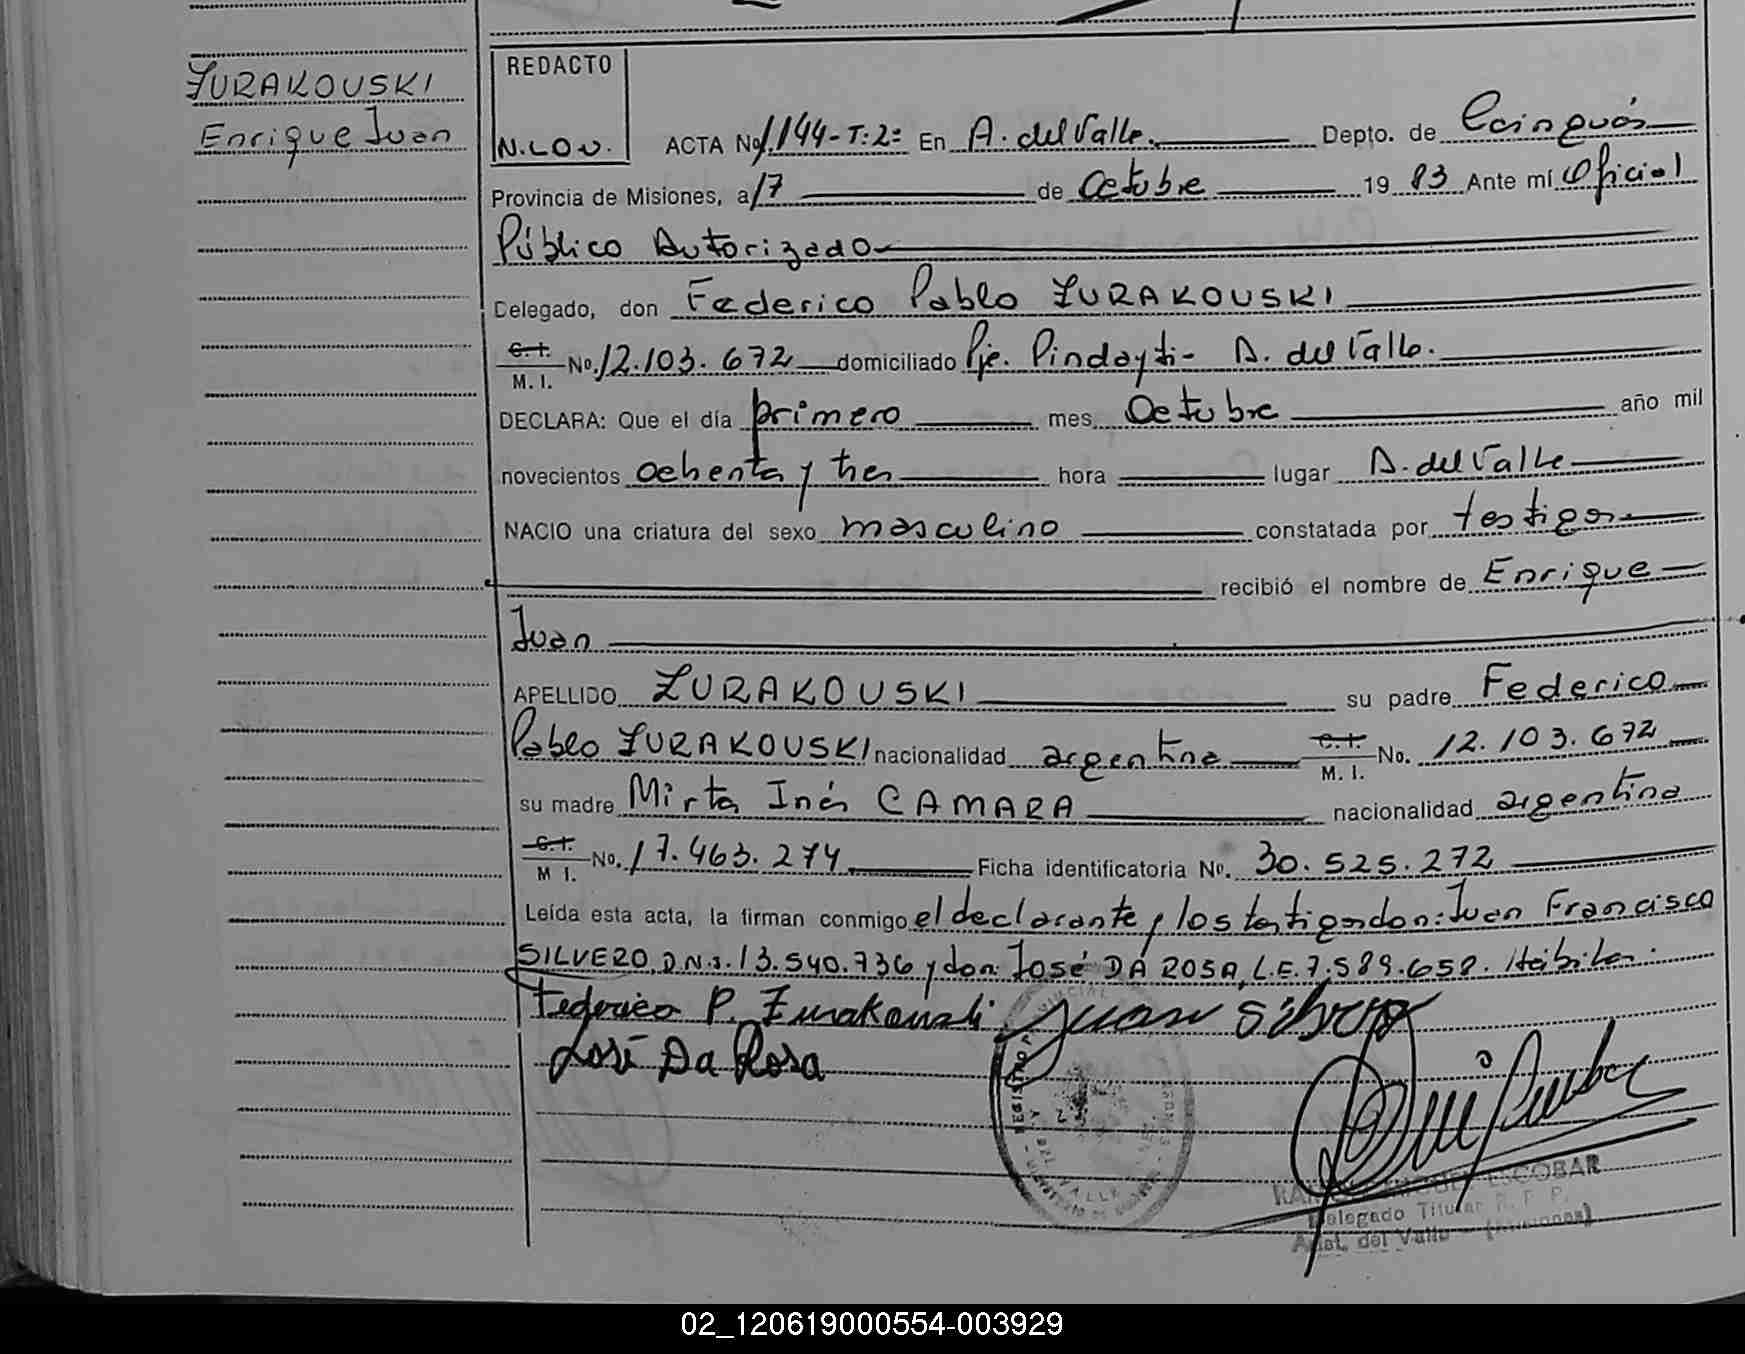 ZURAKOUSKI
Enrique Juan
REDACTO
N.LO.V.
ACTA No 1144-T:2º En A. del Valle. Depto. de Cainguás
Provincia de Misiones, a 17 de Octubre 19 83 Ante mí Oficial
Público Autorizado
Delegado, don Federico Pablo ZURAKOUSKI
C.I. M. I. No. 12.103.672 domiciliado Pje. Pindayti- A. del Valle.
DECLARA: Que el día primero mes Octubre año mil
novecientos ochenta y tres hora lugar A. del Valle
NACIO una criatura del sexo masculino constatada por testigos
recibió el nombre de Enrique
Juan
APELLIDO ZURAKOUSKI su padre Federico
Pablo ZURAKOUSKI nacionalidad argentina C.I. M. I. No. 12.103.672
su madre Mirta Inés CAMARA nacionalidad argentina
C.I. M I. No. 17.463.274 Ficha identificatoria No. 30.525.272
Leída esta acta, la firman conmigo el declarante y los testigos don: Juan Francisco
SILVERO, D.N.I. 13.540.736 y don José DA ROSA, L.E. 7.589.658. Hábiles.
Federico P. Zurakouski Juan Silvero
José Da Rosa
REGISTRO
ESCOBAR
Delegado Titular R. P. P.
Arist. del Valle (Misiones)
02_120619000554-003929